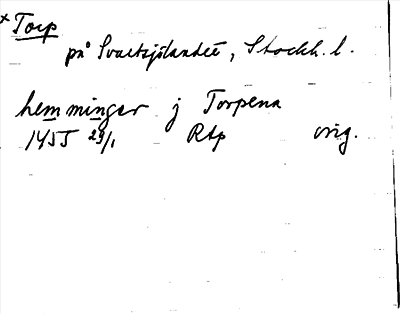 x Torp
på Svartsjölandet, Stockh. l.
hemmingar j Torpena
1455 29/1 RAp orig.